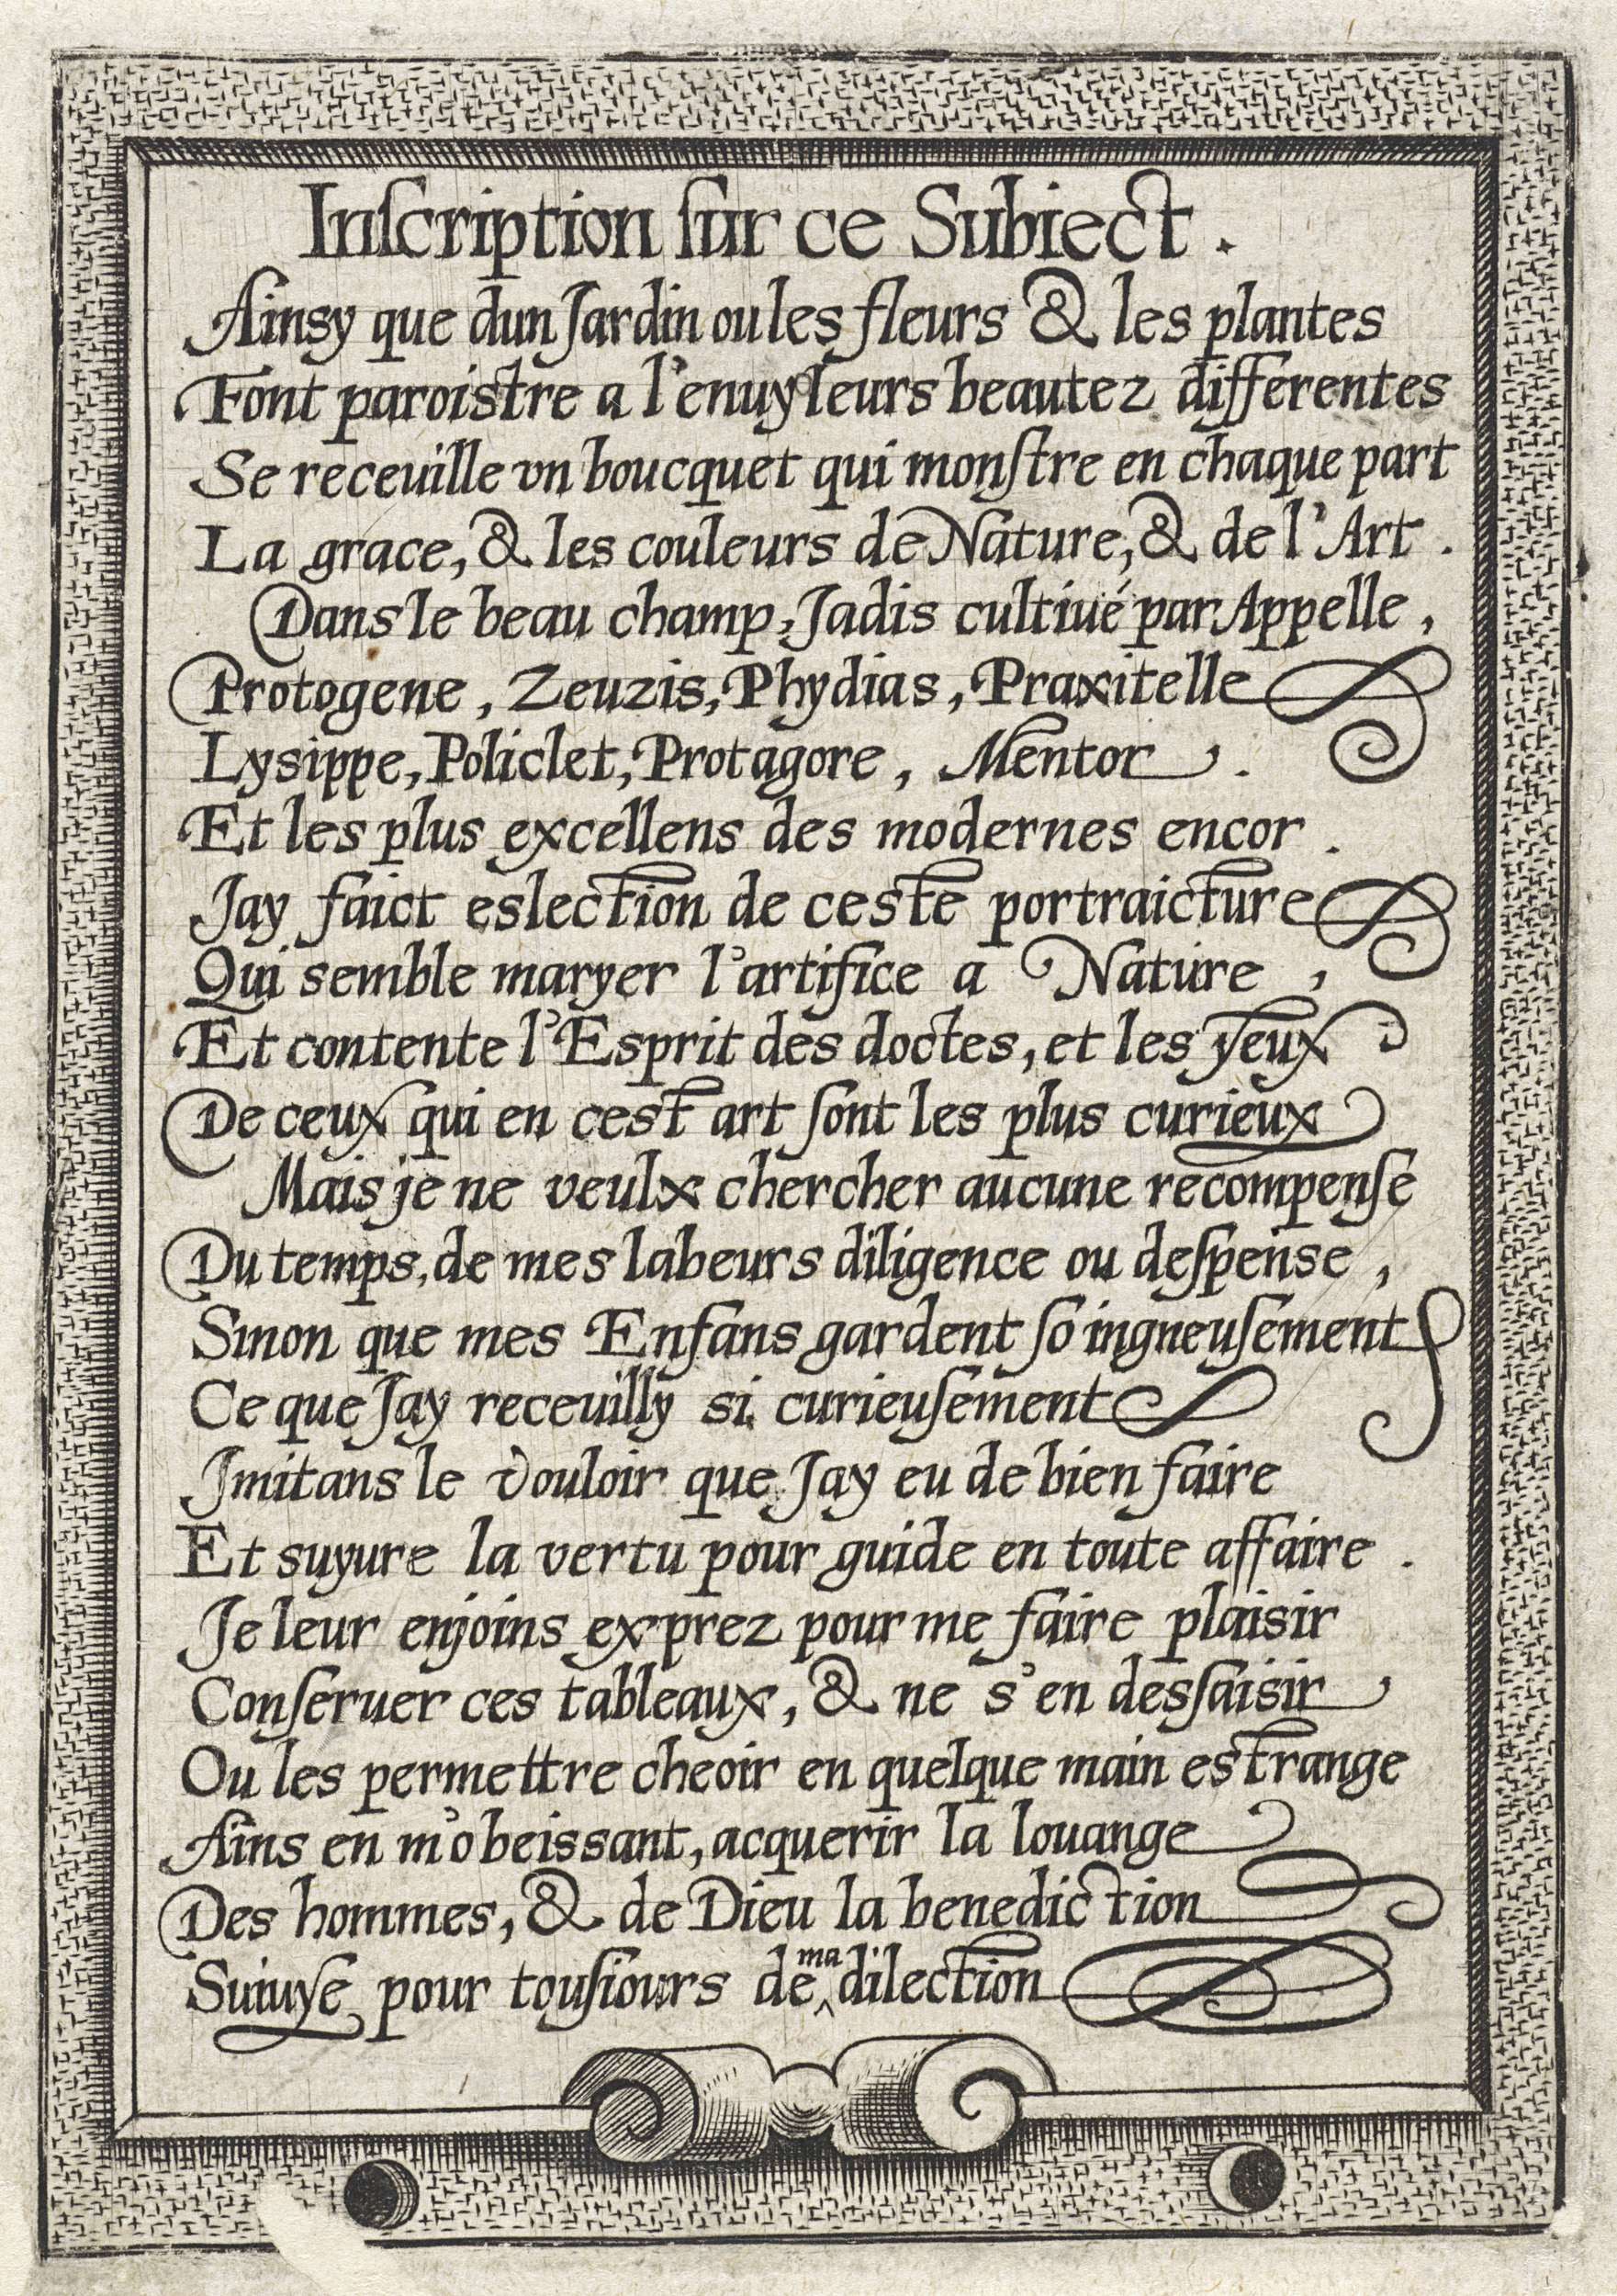 Inſcription ſur ce Subiect.
Ainsy que dun Jardin ou les fleurs & les plantes
Font paroistre a l'enuy leurs beautez differentes
Se receuille vn boucquet qui monſtre en chaque part
La grace, & les couleurs de Nature, & de l'Art.
Dans le beau champ, Jadis cultiué par Appelle,
Protogene, Zeuzis, Phydias, Praxitelle
Lysippe, Policlet, Protagore, Mentor.
Et les plus excellens des modernes encor.
Jay faict eslection de ceste portraicture
Qui semble maryer l'artifice a Nature,
Et contente l'Esprit des doctes, et les yeux
De ceux qui en cest art ſont les plus curieux
Mais je ne veulx chercher aucune recompenſe
Du temps, de mes labeurs diligence ou deſpense,
Sinon que mes Enfans gardent ſoingneuſement
Ce que Jay receuilly si curieuſement
Jmitans le vouloir que Jay eu de bien faire
Et suyure la vertu pour guide en toute affaire.
Je leur enjoins exprez pour me faire plaisir
Conſeruer ces tableaux, & ne s'en desſaisir
Ou les permettre cheoir en quelque main estrange
Ains en m'obeissant, acquerir la louange
Des hommes, & de Dieu la benediction
Suiuye pour touſiours de ma dilection